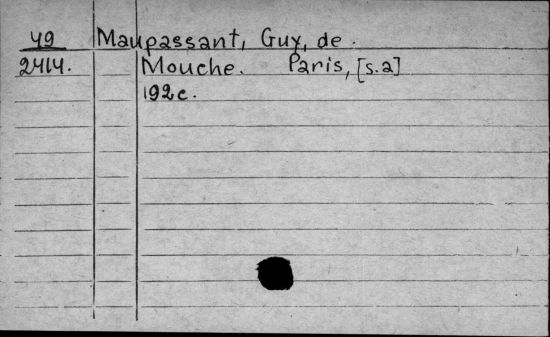 49 Maupassant, Guy, de.
2414. Mouche. Paris, [s.a]
192c.